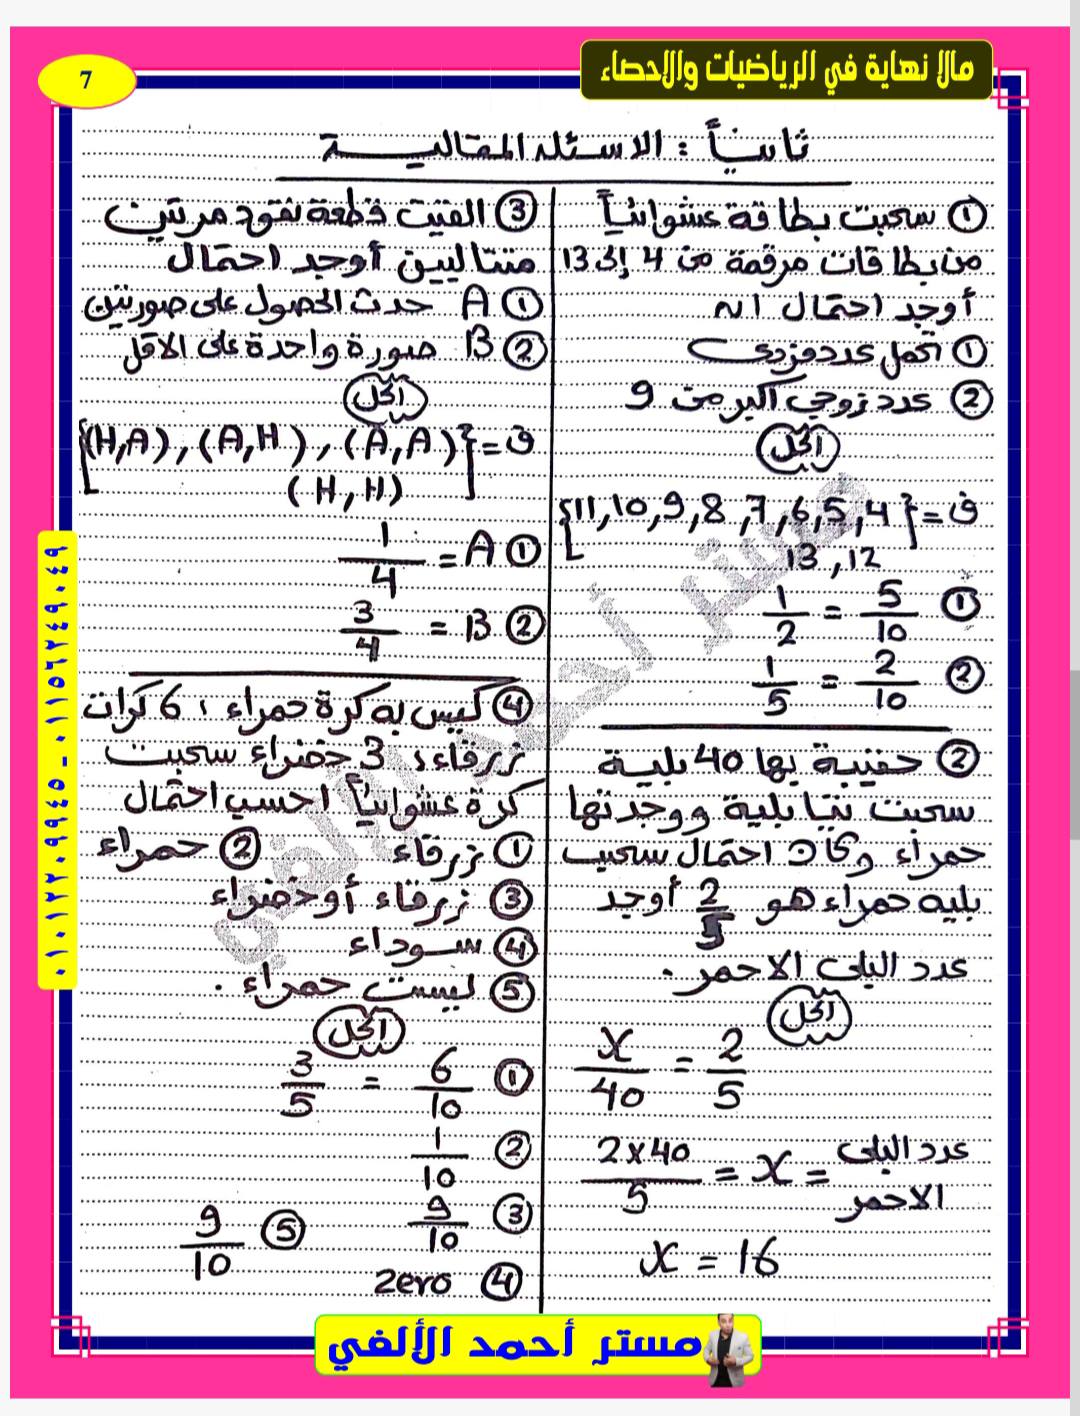 مالا نهاية في الرياضيات والاحصاء
7
ثانياً : الاسئله المقالية
① سحبت بطاقة عشوائياً
من بطاقات مرقمة من 4 إلى 13
أوجد احتمال ان
① تحمل عدد فردى
② عدد زوجي أكبر من 9
الحل
ف = { 4 , 5 , 6 , 7 , 8 , 9 , 10 , 11
12 , 13 }
① 5/10 = 1/2
② 2/10 = 1/5
② حقيبة بها 40 بلية
سحبت بلية ووجدتها
حمراء وكان احتمال سحب
بليه حمراء هو 2/5 أوجد
عدد البلى الاحمر .
الحل
2/5 = x/40
عدد البلى الاحمر = x = 2x40/5
x = 16
③ القيت قطعة نقود مرتين
متتاليين أوجد احتمال
① A حدث الحصول على صورتين
② B صورة واحدة على الاقل
الحل
ف = { (A,A) , (A,H) , (H,A)
(H,H) }
① A = 1/4
② B = 3/4
④ كيس به كرة حمراء ، 6 كرات
زرقاء ، 3 خضراء سحبت
كرة عشوائياً احسب احتمال
① زرقاء ② حمراء
③ زرقاء أو خضراء
④ سوداء
⑤ ليست حمراء .
الحل
① 6/10 = 3/5
② 1/10
③ 9/10 ⑤ 9/10
④ zero
٠١٠١٢٢٠٩٩٤٥ - ٠١١٥٦٢٤٩٠٤٩
مستر أحمد الألفي